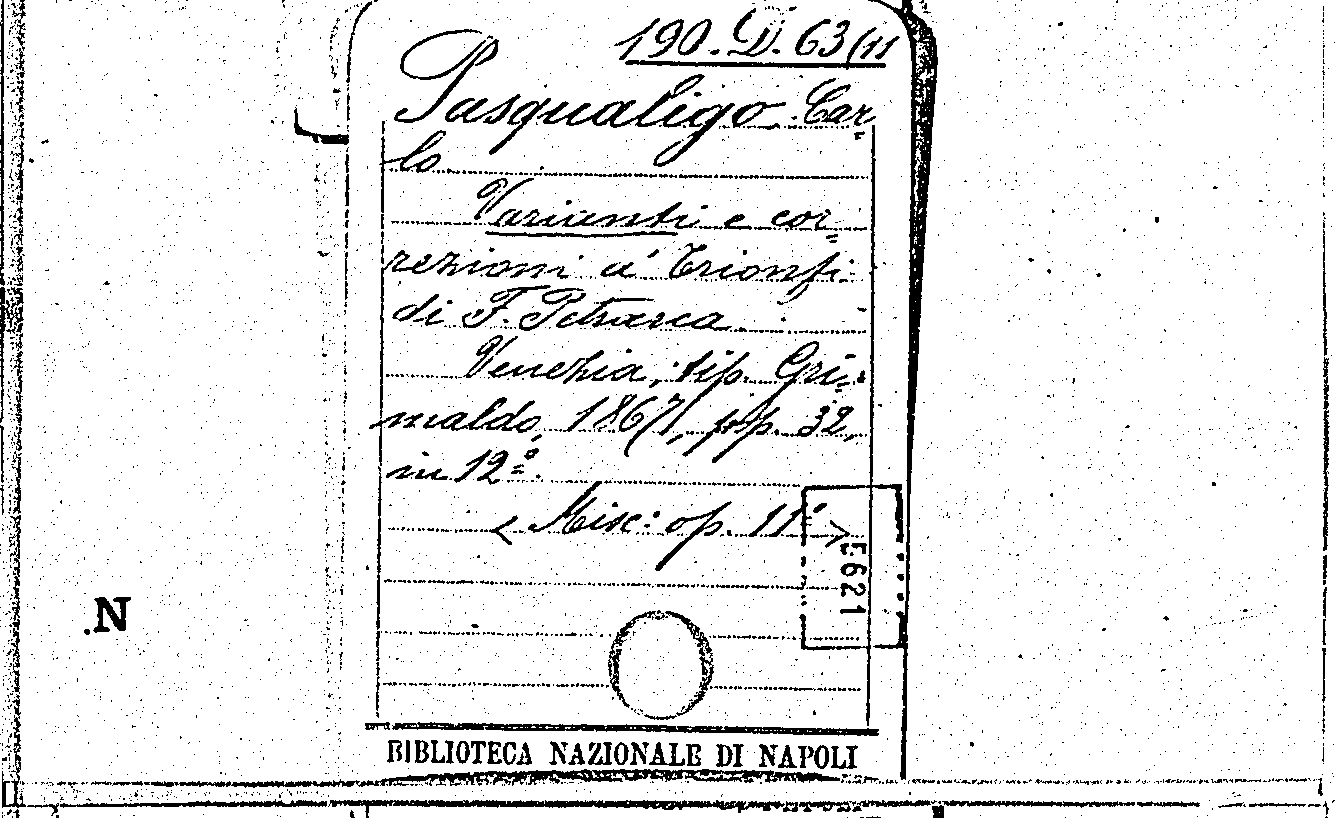 190.D.63(11
Pasqualigo Car-
lo
Varianti e cor-
rezioni a' Trionfi
di F. Petrarca
Venezia, tip. Gri-
maldo, 1867, pp. 32,
in 12º.
< Misc: op. 11º >
5621
.N
BIBLIOTECA NAZIONALE DI NAPOLI